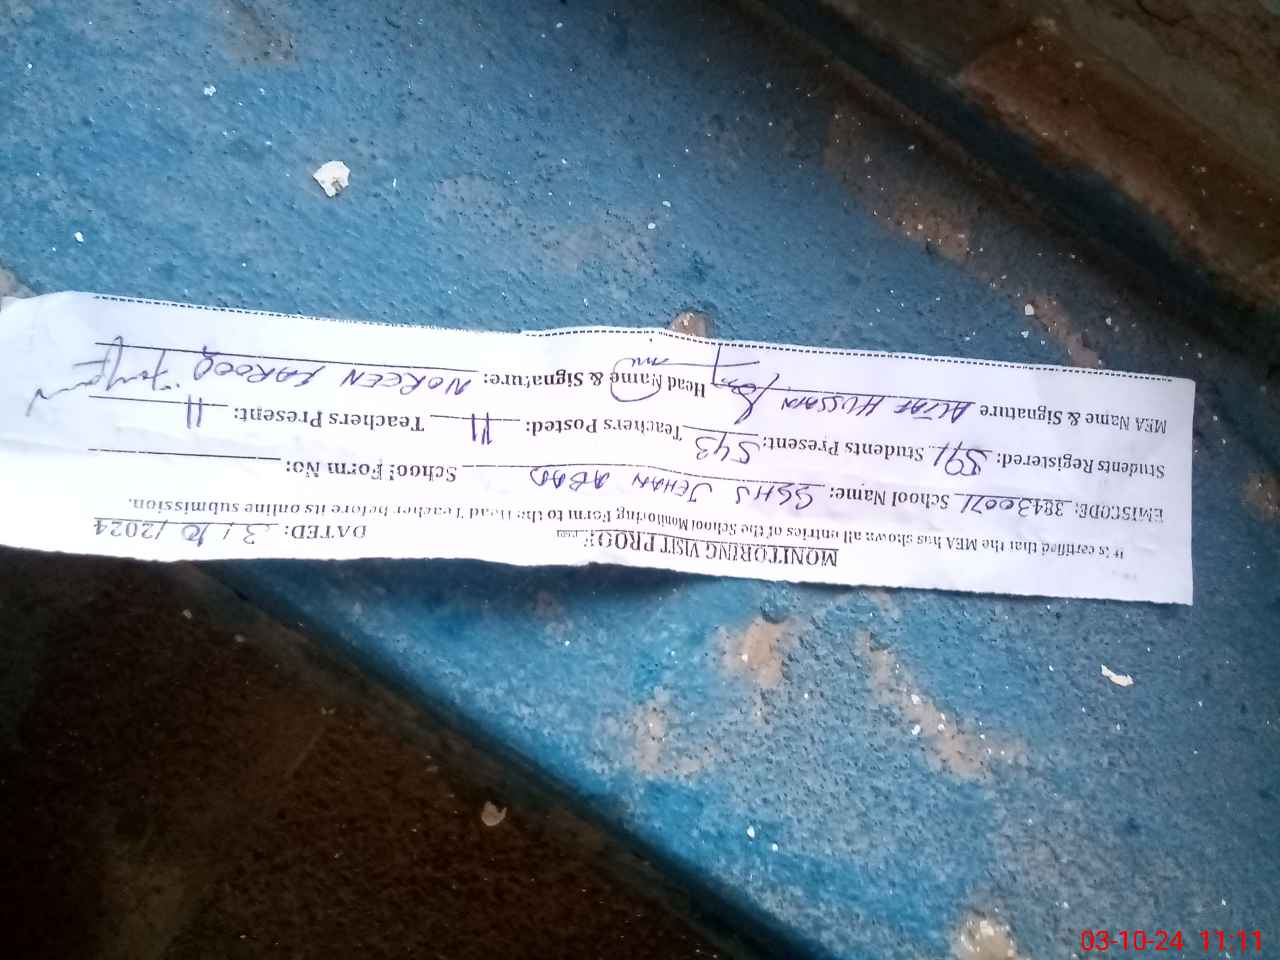 MONITORING VISIT PROOF
DATED: 3/10/2024
It is certified that the MEA has shown all entries of the School Monitoring Form to the Head Teacher before its online submission.
EMISCODE: 38430071 School Name: GGHS JEHAN ABAD School Form No:
Students Registered: 591 Students Present: 543 Teachers Posted: 11 Teachers Present: 11
MEA Name & Signature ALTAF HUSSAIN Head Name & Signature: NOREEN FAROOQ
03-10-24 11:11